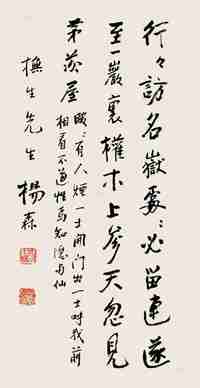 行々訪名嶽處々必留連遂
至一巖裏權木上參天忽見
茅茨屋
曖々有人煙一士開門出一士呼我前
相看不道姓焉知隱与仙
橅生先生 楊森